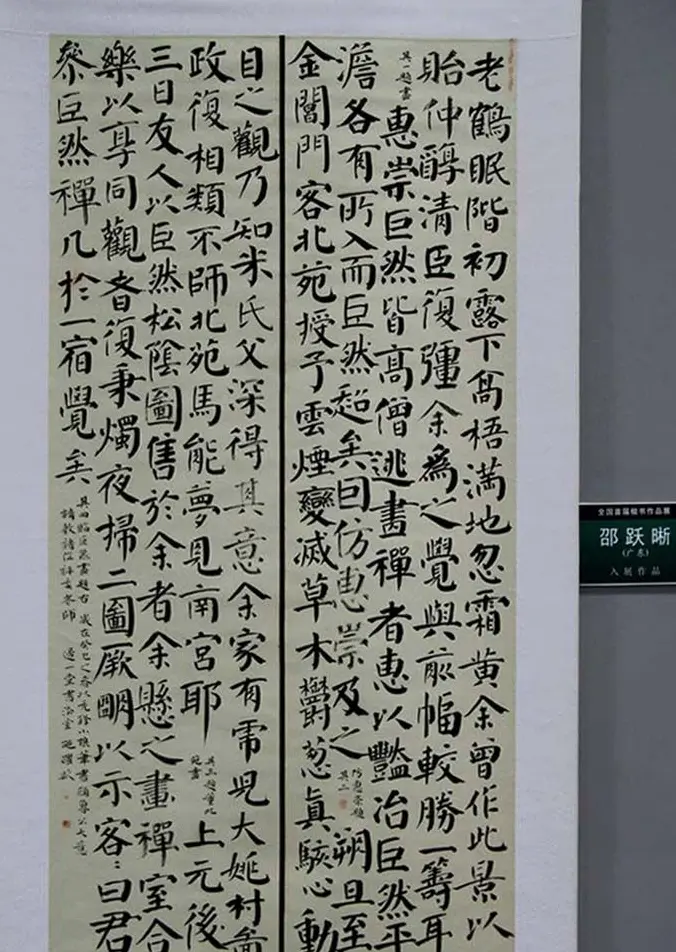 老鶴眠階初露下高梧滿地忽霜黃余曾作此景以
貽仲醇清臣復彊余為之覺與前幅較勝一籌耳
其一題畫 惠崇巨然皆高僧逃畫禪者惠以豔冶巨然平
澹各有所入而巨然超矣因仿惠崇及之 仿惠崇題 其二 朔旦至
金閶門客北苑授予雲煙變滅草木鬱蔥真駭心動
目之觀乃知米氏父深得其意余家有虎兒大姚村圖
政復相類不師北苑焉能夢見南宮耶 其三題董北苑畫 上元後
三日友人以巨然松陰圖售於余者余懸之畫禪室合
樂以享同觀者復秉燭夜掃二圖厥明以示客:曰君
參巨然禪几於一宿覺矣
其四臨巨然畫題右 歲在癸巳之春以
全国首届楷书作品展
邵跃晰
(广东)
入展作品